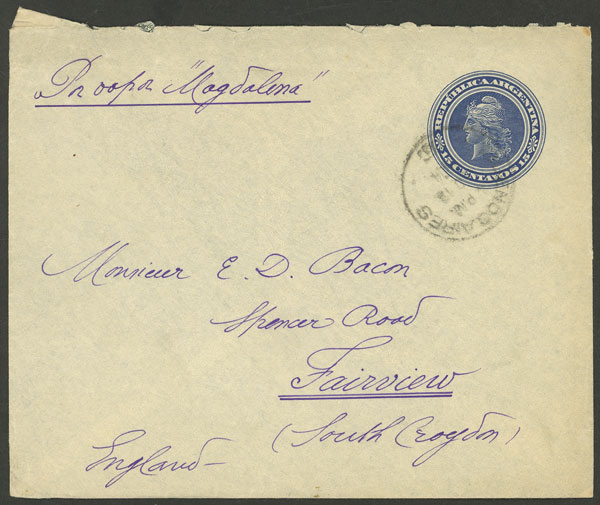 Pr vapor "Magdalena"
REPÚBLICA ARGENTINA
15 CENTAVOS 15
BUENOS AIRES
P.M.
Monsieur E. D. Bacon
Spencer Road
Fairview
(South Croydon)
England